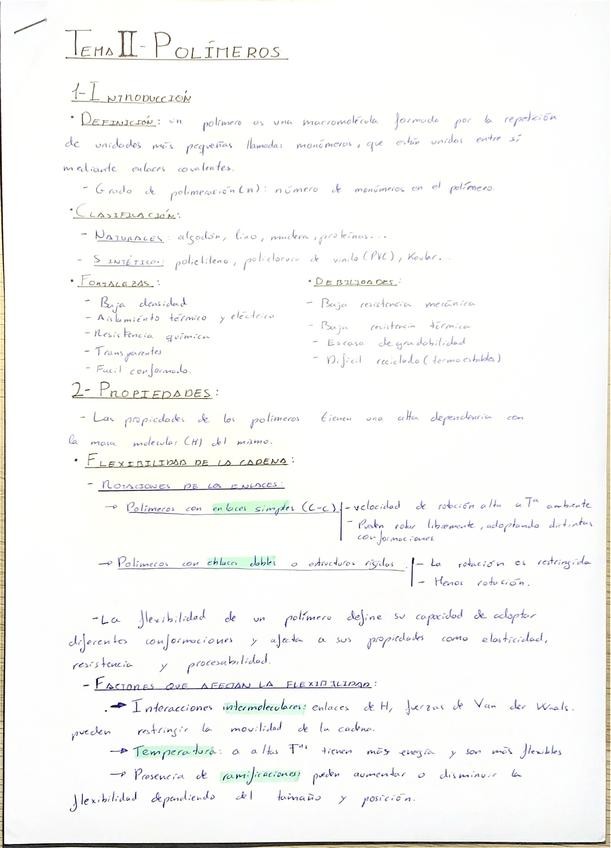 TEMA II - POLÍMEROS
1- INTRODUCCIÓN
• DEFINICIÓN: un polímero es una macromolécula formada por la repetición
de unidades más pequeñas llamadas monómeros, que están unidas entre sí
mediante enlaces covalentes.
- Grado de polimeración (n): número de monómeros en el polímero.
• CLASIFICACIÓN:
- NATURALES: algodón, lino, madera, proteínas...
- SINTÉTICO: polietileno, policloruro de vinilo (PVC), Kevlar...
• FORTALEZAS:
- Baja densidad
- Aislamiento térmico y eléctrico
- Resistencia química
- Transparentes
- Facil conformado.
• DEBILIDADES:
- Baja resistencia mecánica
- Baja resistencia térmica
- Escasa degradabilidad
- Dificil reciclado (termoestables)
2- PROPIEDADES:
- Las propiedades de los polimeros tienen una alta dependencia con
la masa molecular (M) del mismo.
• FLEXIBILIDAD DE LA CADENA:
- ROTACIONES DE LOS ENLACES:
→ Polímeros con enlaces simples (C-C)
- velocidad de rotación alta a Tª ambiente
- Pueden rotar libremente, adoptando distintas
conformaciones
→ Polímeros con enlaces dobles o estructuras rígidas
- La rotación es restringida
- Menos rotación.
- La flexibilidad de un polímero define su capacidad de adoptar
diferentes conformaciones y afecta a sus propiedades como elasticidad,
resistencia y procesabilidad.
- FACTORES QUE AFECTAN LA FLEXIBILIDAD:
→ Interacciones intermoleculares: enlaces de H, fuerzas de Van der Waals.
pueden restringir la movilidad de la cadena.
→ Temperatura: a altas Tªˢ tienen más energía y son más flexibles
→ Presencia de ramificaciones: pueden aumentar o disminuir la
flexibilidad dependiendo del tamaño y posición.